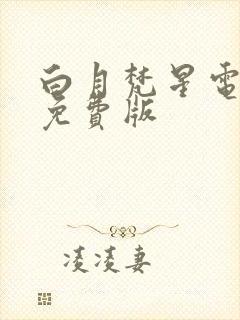 白月梵星電
免費版
凌凌妻